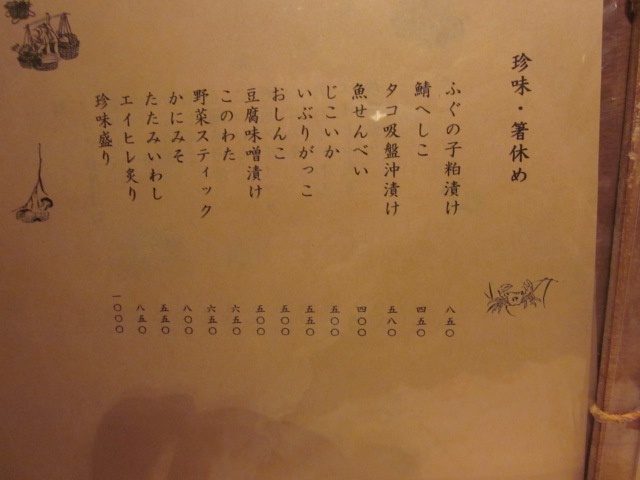 珍味・箸休め
ふぐの子粕漬け 八五〇
鯖へしこ 四五〇
タコ吸盤沖漬け 五八〇
魚せんべい 四〇〇
じこいか 五〇〇
いぶりがっこ 五五〇
おしんこ 五〇〇
豆腐味噌漬け 五〇〇
このわた 六五〇
野菜スティック 六五〇
かにみそ 八〇〇
たたみいわし 五五〇
エイヒレ炙り 八五〇
珍味盛り 一〇〇〇